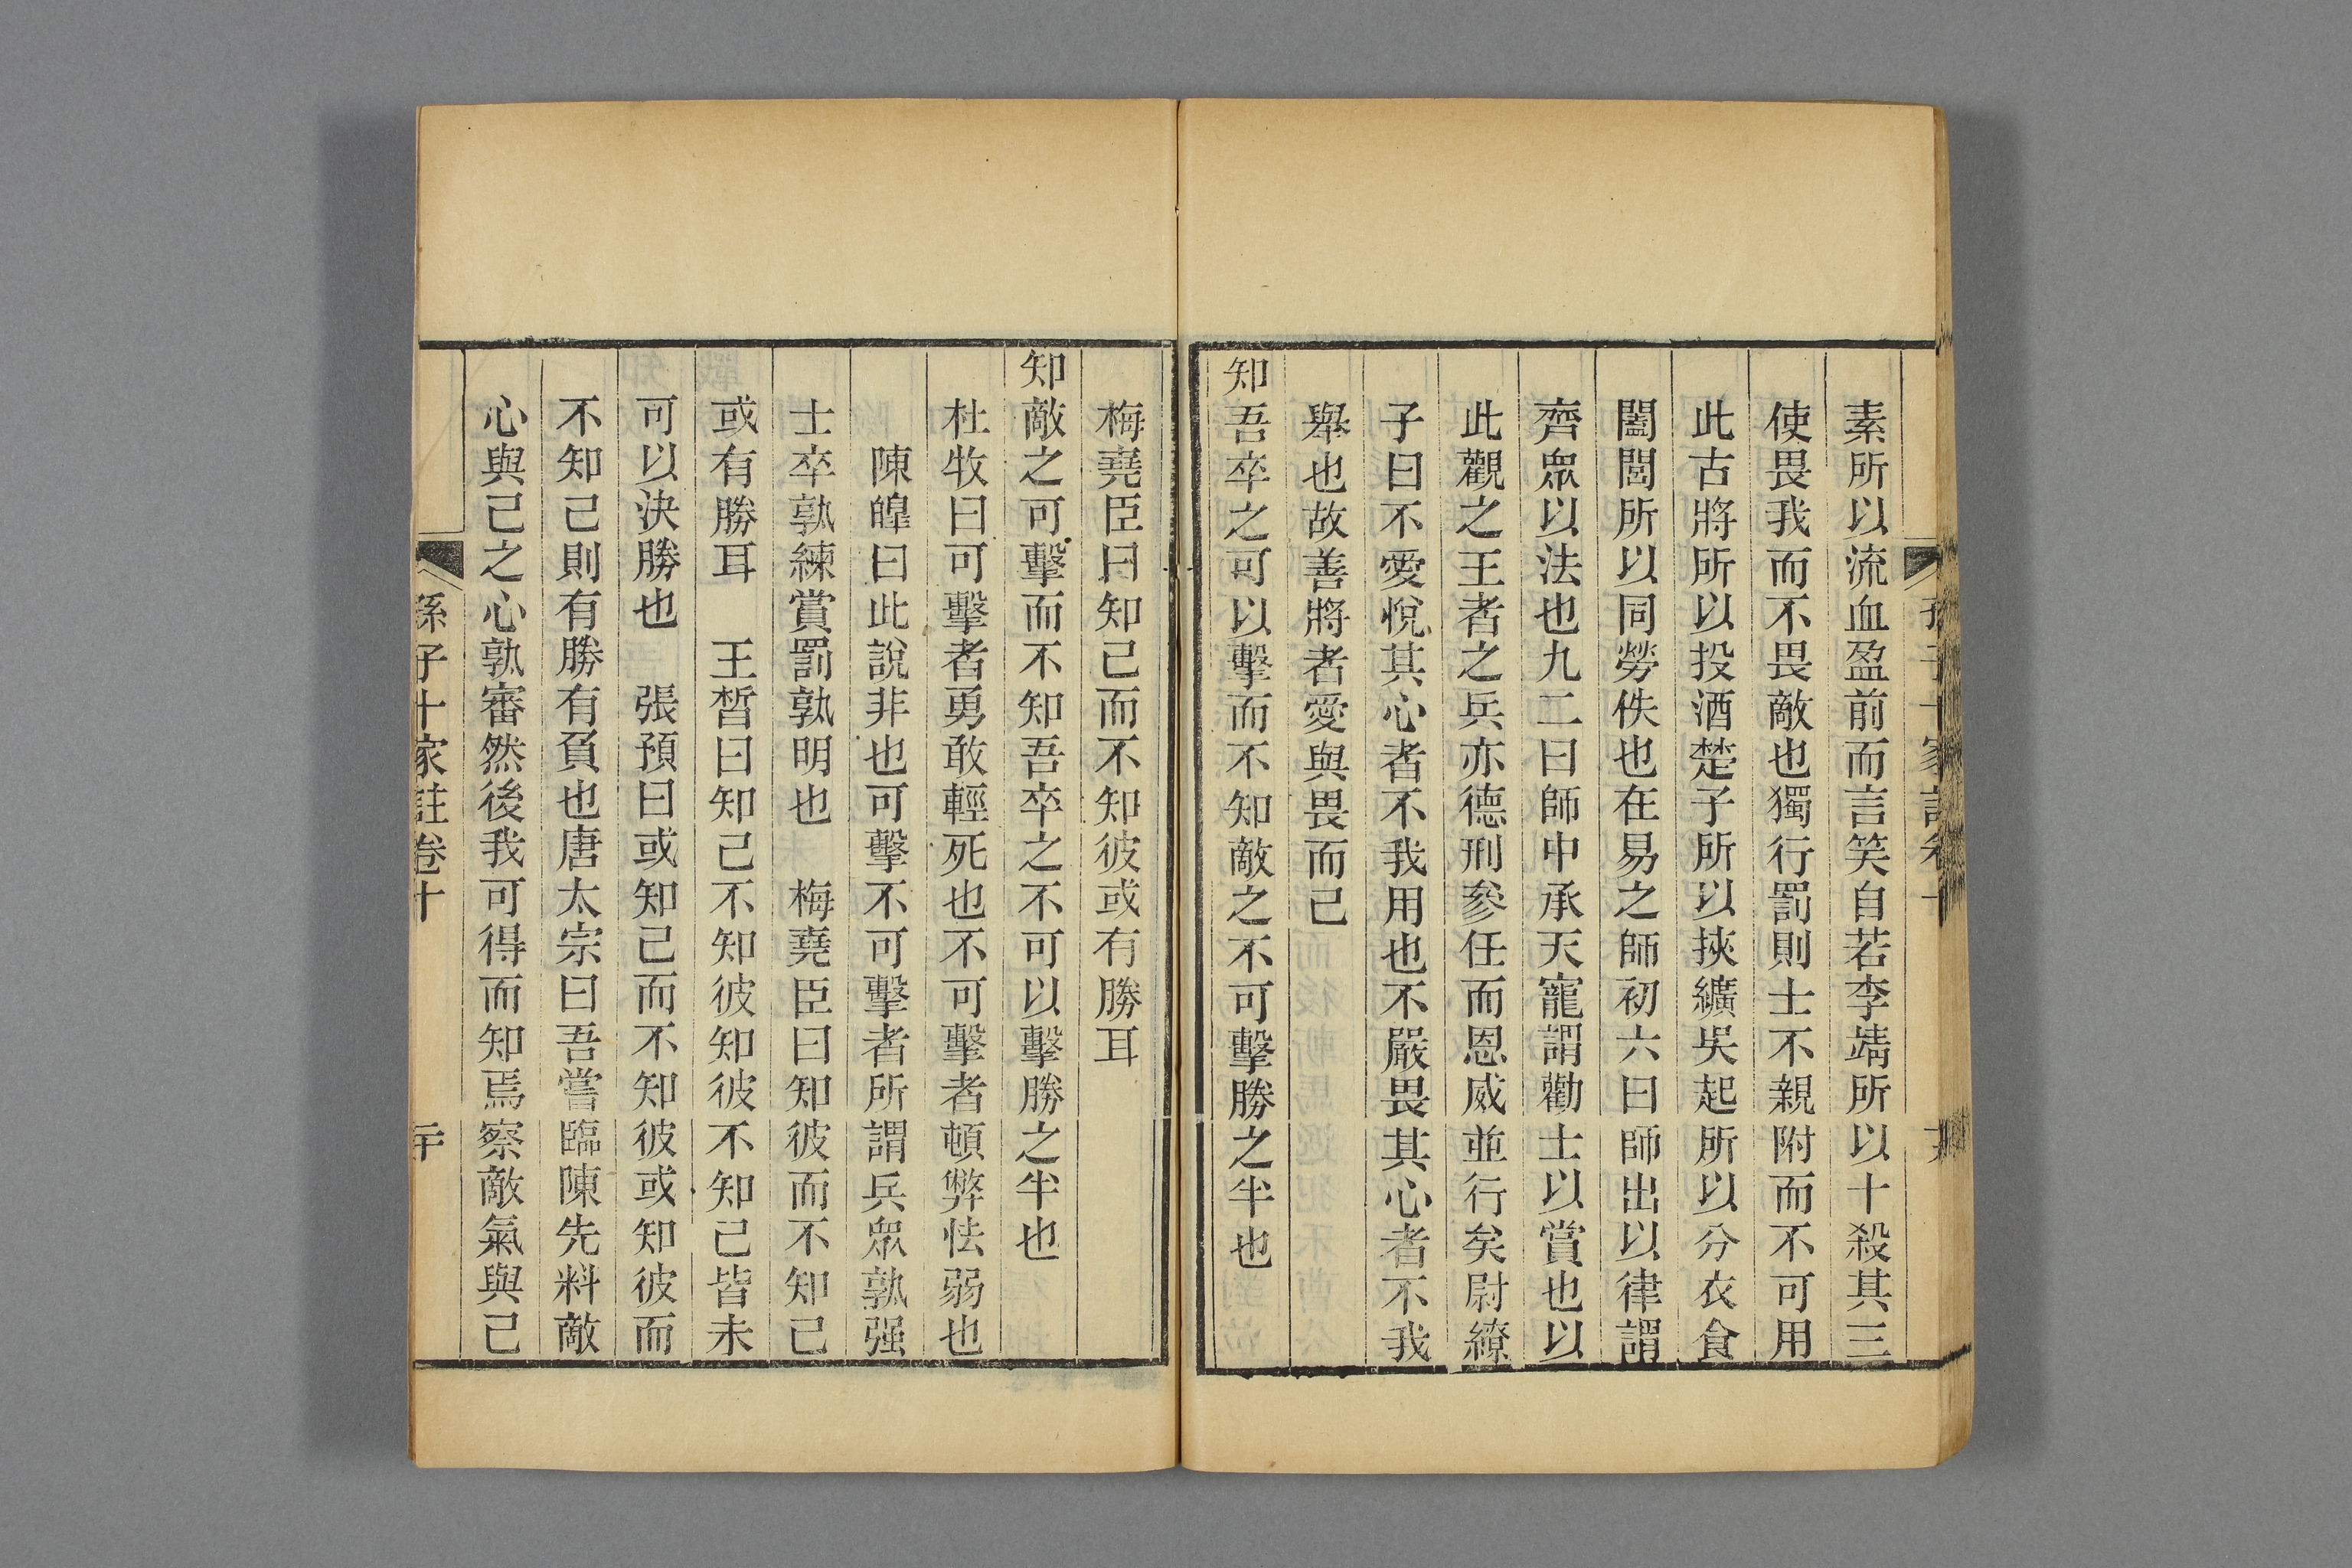 素所以流血盈前而言笑自若李靖所以十殺其三
使畏我而不畏敵也獨行罰則士不親附而不可用
此古將所以投酒楚子所以挾纊吳起所以分衣食
闔閭所以同勞佚也在易之師初六曰師出以律謂
齊眾以法也九二曰師中承天寵謂勸士以賞也以
此觀之王者之兵亦德刑參任而恩威並行矣尉繚
子曰不愛悅其心者不我用也不嚴畏其心者不我
舉也故善將者愛與畏而己
知吾卒之可以擊而不知敵之不可擊勝之半也
梅堯臣曰知己而不知彼或有勝耳
知敵之可擊而不知吾卒之不可以擊勝之半也
杜牧曰可擊者勇敢輕死也不可擊者頓弊怯弱也
陳皥曰此說非也可擊不可擊者所謂兵眾孰强
士卒孰練賞罰孰明也　梅堯臣曰知彼而不知己
或有勝耳　王晳曰知己不知彼知彼不知己皆未
可以決勝也　張預曰或知己而不知彼或知彼而
不知己則有勝有負也唐太宗曰吾嘗臨陳先料敵
心與己之心孰審然後我可得而知焉察敵氣與己
孫子十家註卷十
二十